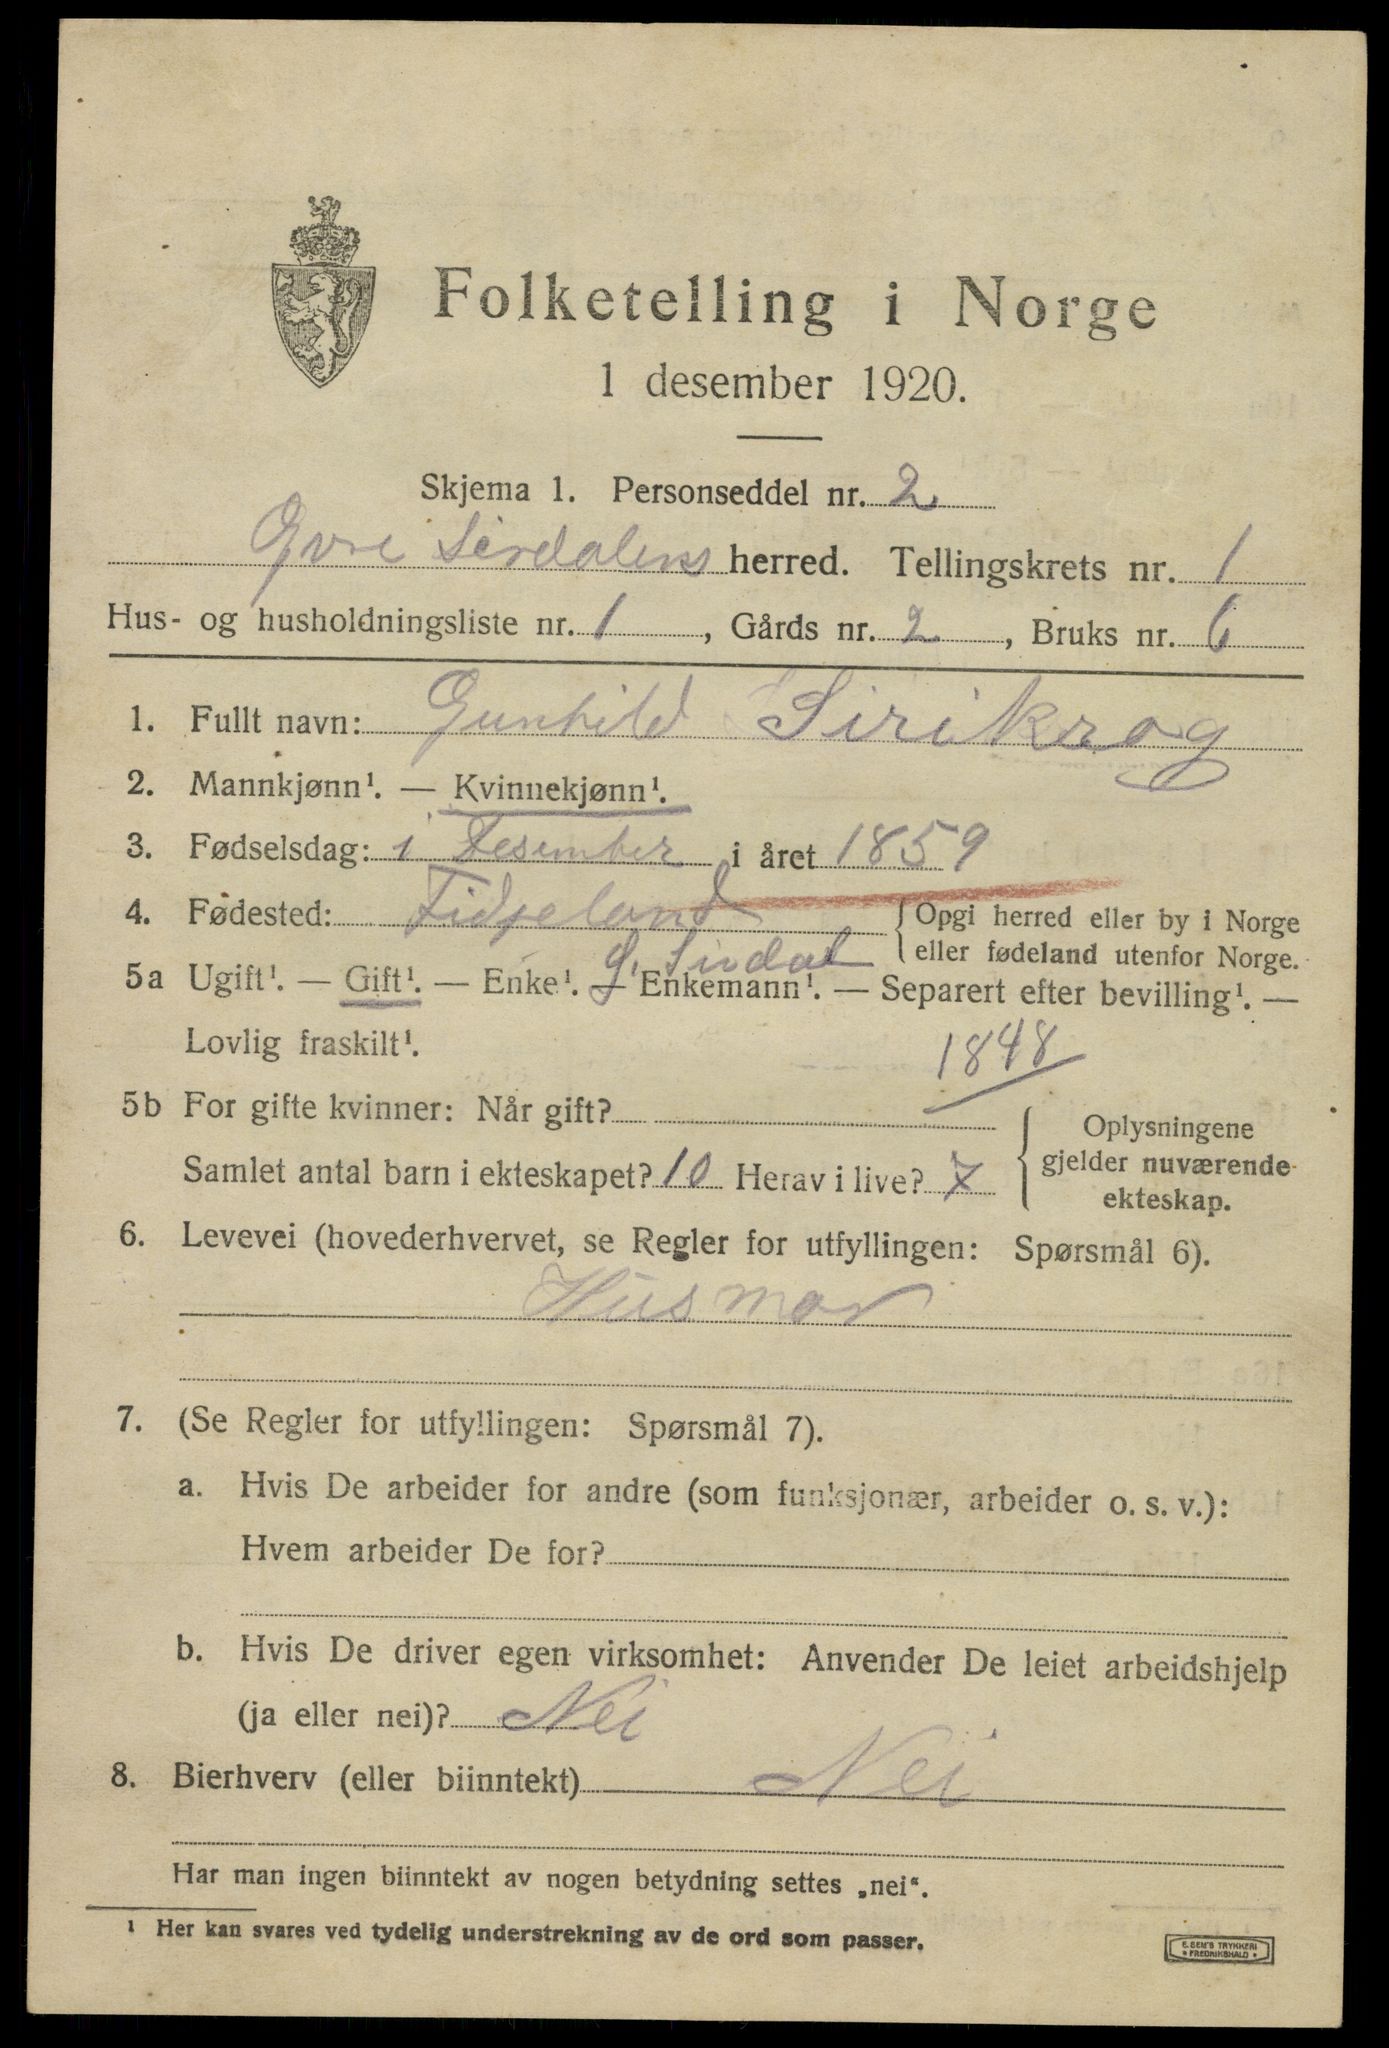 Folketelling i Norge
1 desember 1920.
Skjema 1. Personseddel nr. 2
Øvre Sirdalens herred. Tellingskrets nr. 1
Hus- og husholdningsliste nr. 1, Gårds nr. 2, Bruks nr. 6
1. Fullt navn: Gunhild Sirikrog
2. Mannkjønn¹. — Kvinnekjønn¹.
3. Fødselsdag: 1 Desember i året 1859
4. Fødested: Fidjeland { Opgi herred eller by i Norge
eller fødeland utenfor Norge.
Ø. Sirdal
5a Ugift¹. — Gift¹. — Enke¹. — Enkemann¹. — Separert efter bevilling¹. —
Lovlig fraskilt¹.
1848
5b For gifte kvinner: Når gift?
Samlet antal barn i ekteskapet? 10 Herav i live? 7
{ Oplysningene
gjelder nuværende
ekteskap.
6. Levevei (hovederhvervet, se Regler for utfyllingen: Spørsmål 6).
Husmor
7. (Se Regler for utfyllingen: Spørsmål 7).
a. Hvis De arbeider for andre (som funksjonær, arbeider o. s. v.):
Hvem arbeider De for?
b. Hvis De driver egen virksomhet: Anvender De leiet arbeidshjelp
(ja eller nei)? Nei
8. Bierhverv (eller biinntekt) Nei
Har man ingen biinntekt av nogen betydning settes „nei“.
¹ Her kan svares ved tydelig understrekning av de ord som passer.
E. SEM'S TRYKKERI
* FREDRIKSHALD *